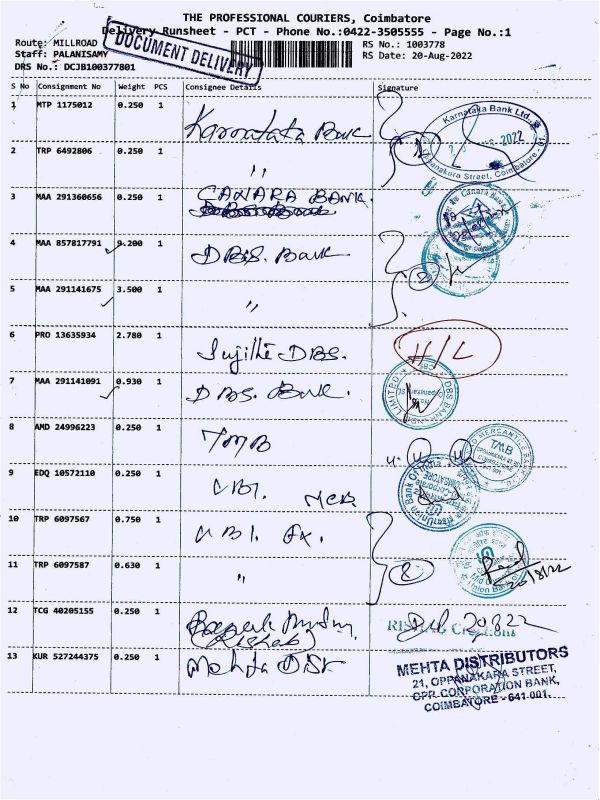 THE PROFESSIONAL COURIERS, Coimbatore
Delivery Runsheet - PCT - Phone No.:0422-3505555 - Page No.:1
Route: MILLROAD
Staff: PALANISAMY
DRS No.: DCJB100377801
DOCUMENT DELIVERY
RS No.: 1003778
RS Date: 20-Aug-2022
S No Consignment No Weight PCS Consignee Details Signature
1 MTP 1175012 0.250 1 Karnataka Bank
Karnataka Bank Ltd.,
2022
Oppanakura Street, Coimbatore
2 TRP 6492806 0.250 1 〃
3 MAA 291360656 0.250 1 CANARA BANK
Canara Bank
4 MAA 857817791 9.200 1 DBS. Bank
2
5 MAA 291141675 3.500 1 〃
6 PRO 13635934 2.780 1 Sujithi DBS.
H/L
7 MAA 291141091 0.930 1 DBS. Bank
DBS BANK LIMITED
8 AMD 24996223 0.250 1 TMB
MERCANTILE BANK
TMB
9 EDQ 10572110 0.250 1 UBI. MCB
Union Bank Of India
10 TRP 6097567 0.750 1 UBI.
11 TRP 6097587 0.630 1 〃
2
Union Bank
20/8/22
12 TCG 40205155 0.250 1
20822
13 KUR 527244375 0.250 1 Mehta Dist
MEHTA DISTRIBUTORS
21, OPPANAKARA STREET,
OPP. CORPORATION BANK,
COIMBATORE - 641 001.